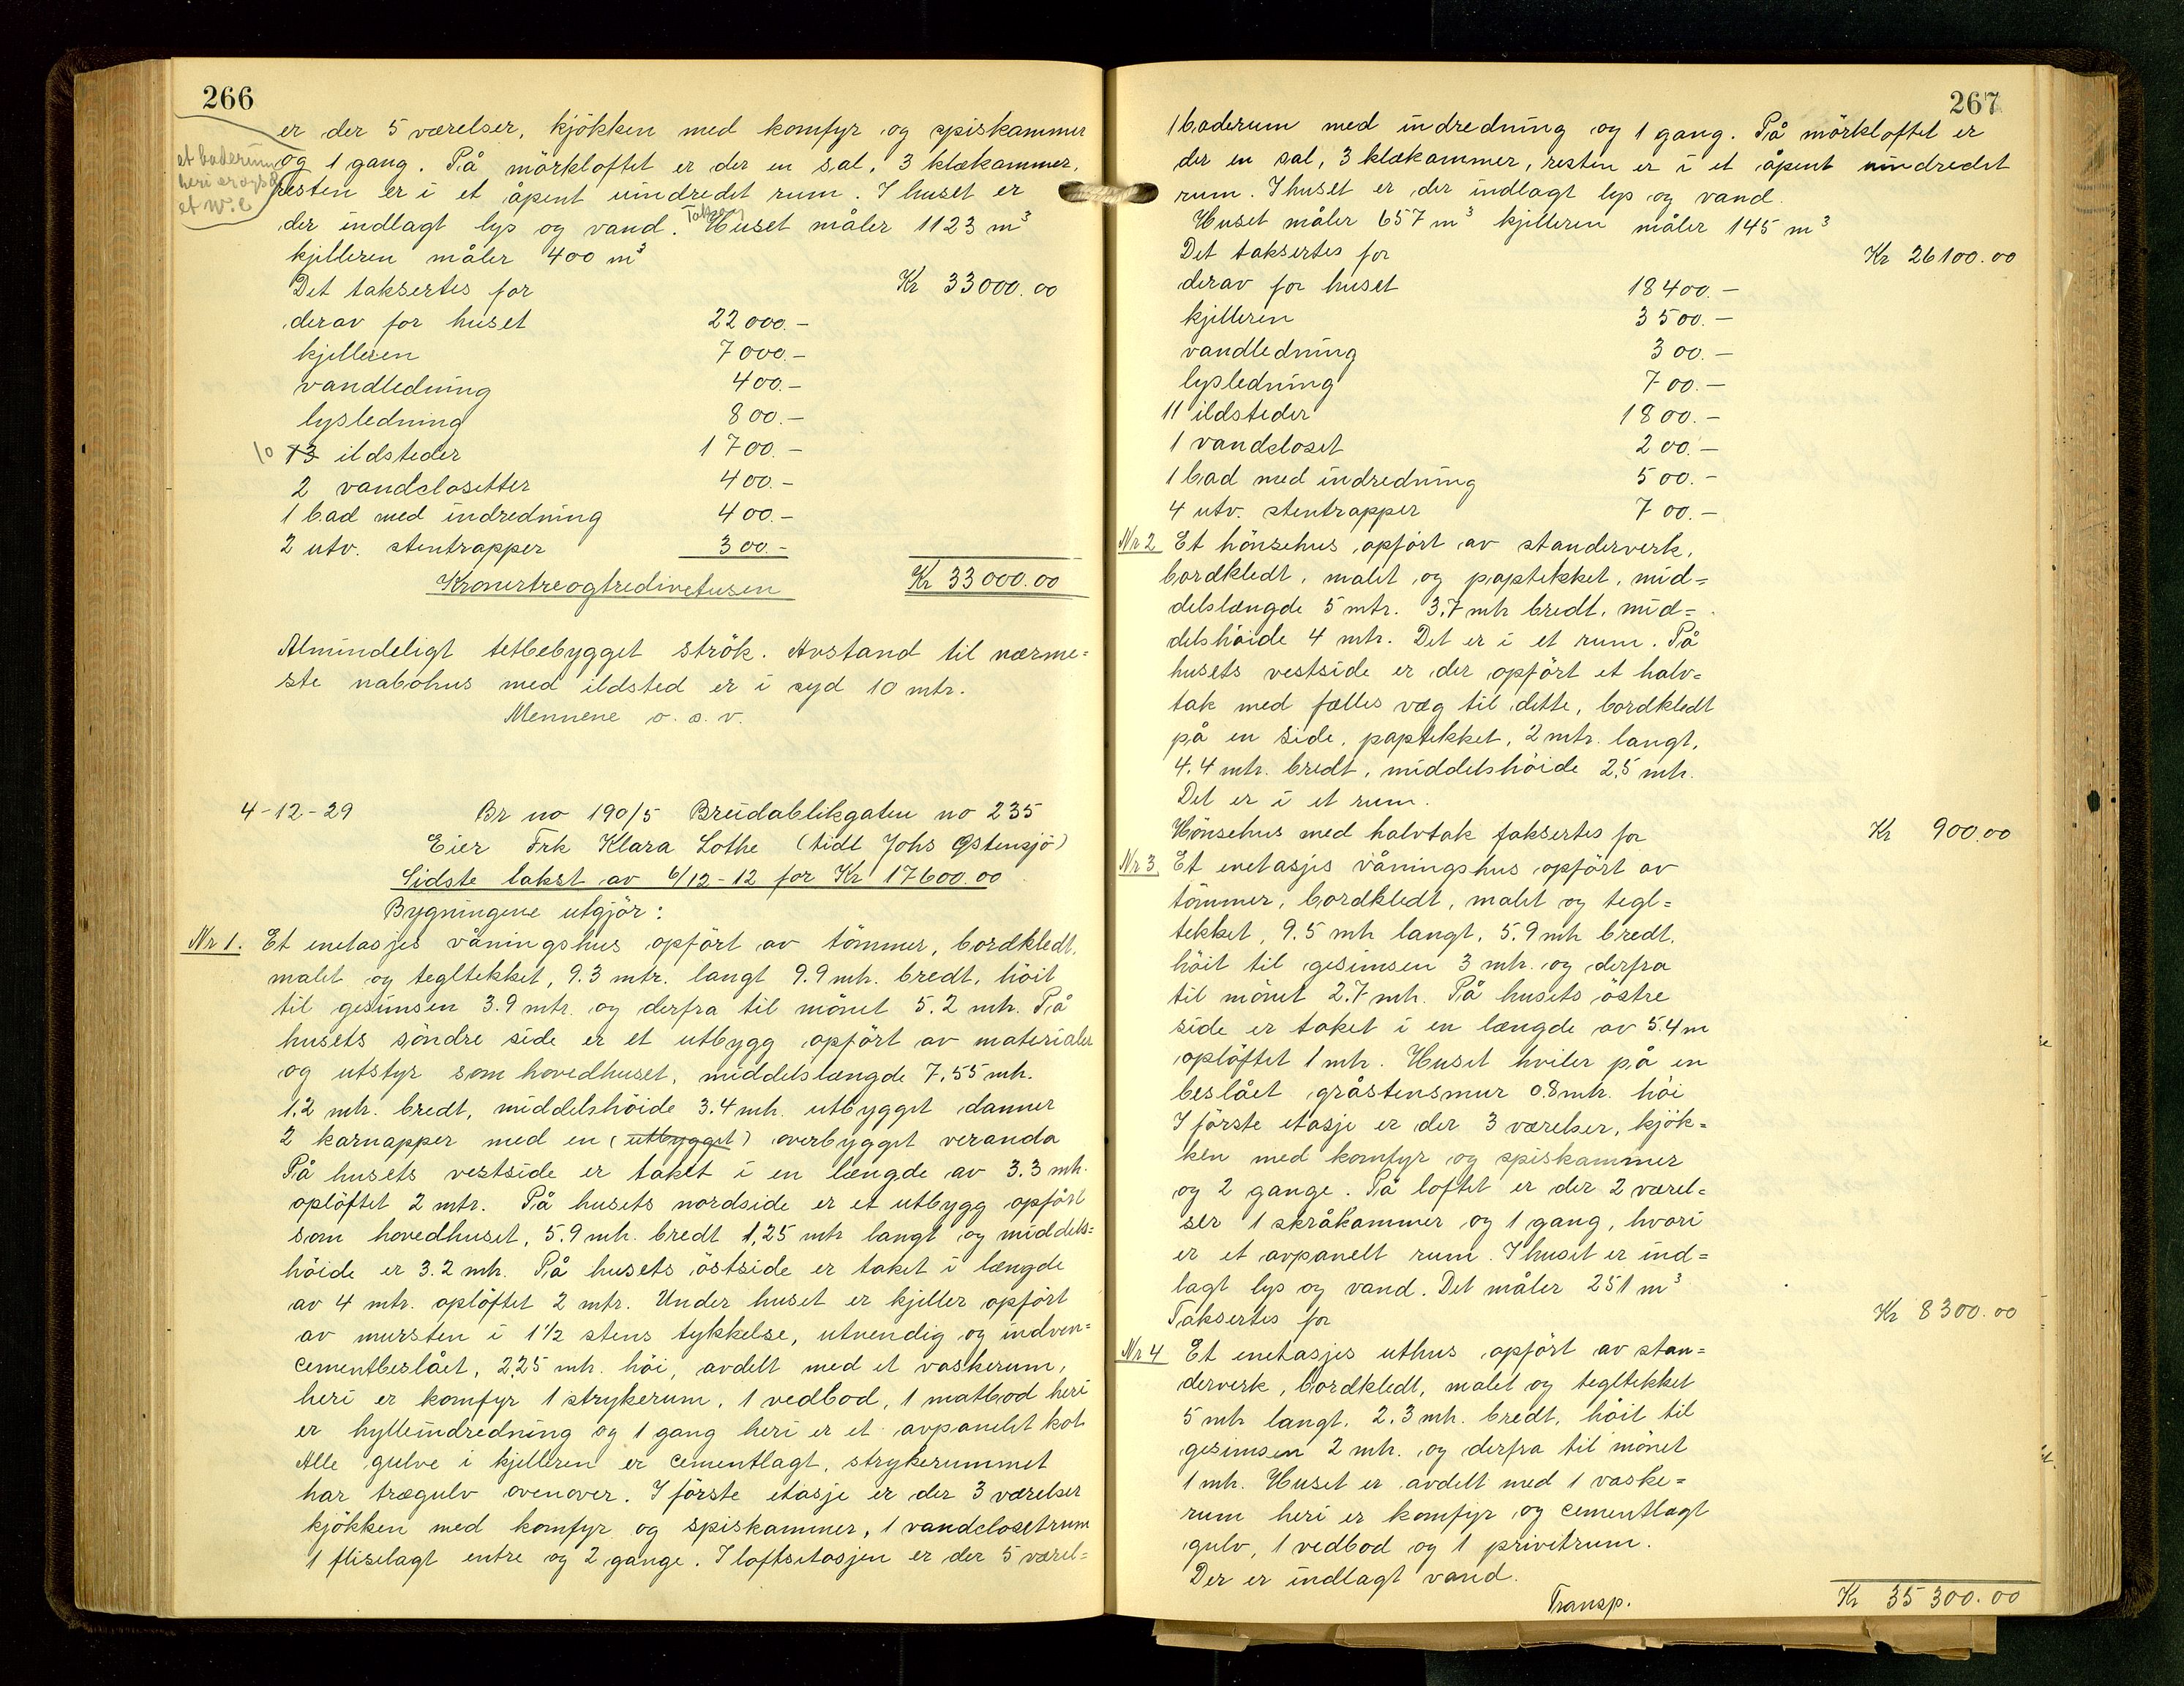 266
er der 5 værelser, kjökken med komfyr og spiskammer
et baderum
heri er også
et W.C
og 1 gang. På mörkloftet er der en sal, 3 klækammer,
resten er i et åpent uindredet rum. I huset er
der indlagt lys og vand. Huset måler 1123 m³
kjelleren måler 400 m³
Det taksertes for Kr 33000.00
derav for huset 22000.-
kjelleren 7000.-
vandledning 400.-
lysledning 800.-
10 13 ildsteder 1700.-
2 vandclosetter 400.-
1 bad med indredning 400.-
2 utv. stentrapper 300.-
Kronertreogtredivetusen Kr 33000.00
Almindeligt tetbebygget strök. Avstand til nærme=
ste nabohus med ildsted er i syd 10 mtr.
Mennene o. s. v.
4-12-29 Br no 190/5 Breidablikgaten no 235
Eier Frk Klara Lothe (tidl Johs Østensjö)
Sidste takst av 6/12-12 for Kr 17600.00
Bygningene utgjör:
Nr 1. Et enetasjes våningshus opfört av tömmer, bordkledt,
malet og tegltekket, 9.3 mtr. langt 9.9 mtr. bredt, höit
til gesimsen 3.9 mtr. og derfra til mönet 5.2 mtr. På
husets söndre side er et utbygg opfört av materialer
og utstyr som hovedhuset, middelslængde 7,55 mtr.
1,2 mtr. bredt, middelshöide 3.4 mtr. utbygget danner
2 karnapper med en (utbygget) overbygget veranda
På husets vestside er taket i en længde av 3.3 mtr.
oplöftet 2 mtr. På husets nordside er et utbygg opfört
som hovedhuset, 5.9 mtr. bredt 1,25 mtr langt og middels=
höide er 3.2 mtr. På husets östside er taket i længde
av 4 mtr. oplöftet 2 mtr. Under huset er kjeller opfört
av mursten i 1½ stens tykkelse, utvendig og indven=
cementbeslået, 2,25 mtr. höi, avdelt med et vaskerum,
heri er komfyr 1 strykerum, 1 vedbod, 1 matbod heri
er hylleindredning og 1 gang heri er et avpanelet kot
Alle gulve i kjelleren er cementlagt, strykerummet
har trægulv ovenover. I förste etasje er der 3 værelser
kjökken med komfyr og spiskammer, 1 vandclosetrum
1 fliselagt entre og 2 gange. I loftsetasjen er der 5 værel=
267
1 baderum med indredning og 1 gang. På mörkloftet er
der en sal, 3 klækammer, resten er i et åpent uindredet
rum. I huset er der indlagt lys og vand.
Huset måler 657 m³ kjelleren måler 145 m³
Det taksertes for Kr 26100.00
derav for huset 18400.-
kjelleren 3500.-
vandledning 300.-
lysledning 700.-
11 ildsteder 1800.-
1 vandcloset 200.-
1 bad med indredning 500.-
4 utv. stentrapper 700.-
Nr 2 Et hönsehus opfört av standerverk,
bordkledt, malet og paptekket, mid=
delslængde 5 mtr. 3,7 mtr bredt, mid=
delshöide 4 mtr. Det er i et rum. På
husets vestside er der opfört et halv=
tak med fælles væg til dette, bordkledt
på en side, paptekket, 2 mtr. langt,
4.4 mtr. bredt, middelshöide 2,5 mtr.
Det er i et rum.
Hönsehus med halvtak taksertes for Kr 900.00
Nr 3. Et enetasjes våningshus opfört av
tömmer, bordkledt, malet og tegl=
tekket, 9.5 mtr langt, 5.9 mtr bredt,
höit til gesimsen 3 mtr. og derfra
til mönet 2.7 mtr. På husets östre
side er taket i en længde av 5.4 m
oplöftet 1 mtr. Huset hviler på en
beslået gråstensmur 0.8 mtr. höi
I förste etasje er der 3 værelser, kjök=
ken med komfyr og spiskammer
og 2 gange. På loftet er der 2 værel=
ser 1 skråkammer og 1 gang, hvori
er et avpanelt rum. I huset er ind=
lagt lys og vand. Det måler 251 m³
Taksertes for Kr 8300.00
Nr 4 Et enetasjes uthus opfört av stan=
derverk, bordkledt, malet og tegltekket
5 mtr langt, 2.3 mtr. bredt, höit til
gesimsen 2 mtr. og derfra til mönet
1 mtr. Huset er avdelt med 1 vaske=
rum heri er komfyr og cementlagt
gulv, 1 vedbod og 1 privetrum.
Der er indlagt vand.
Transp. Kr 35300.00